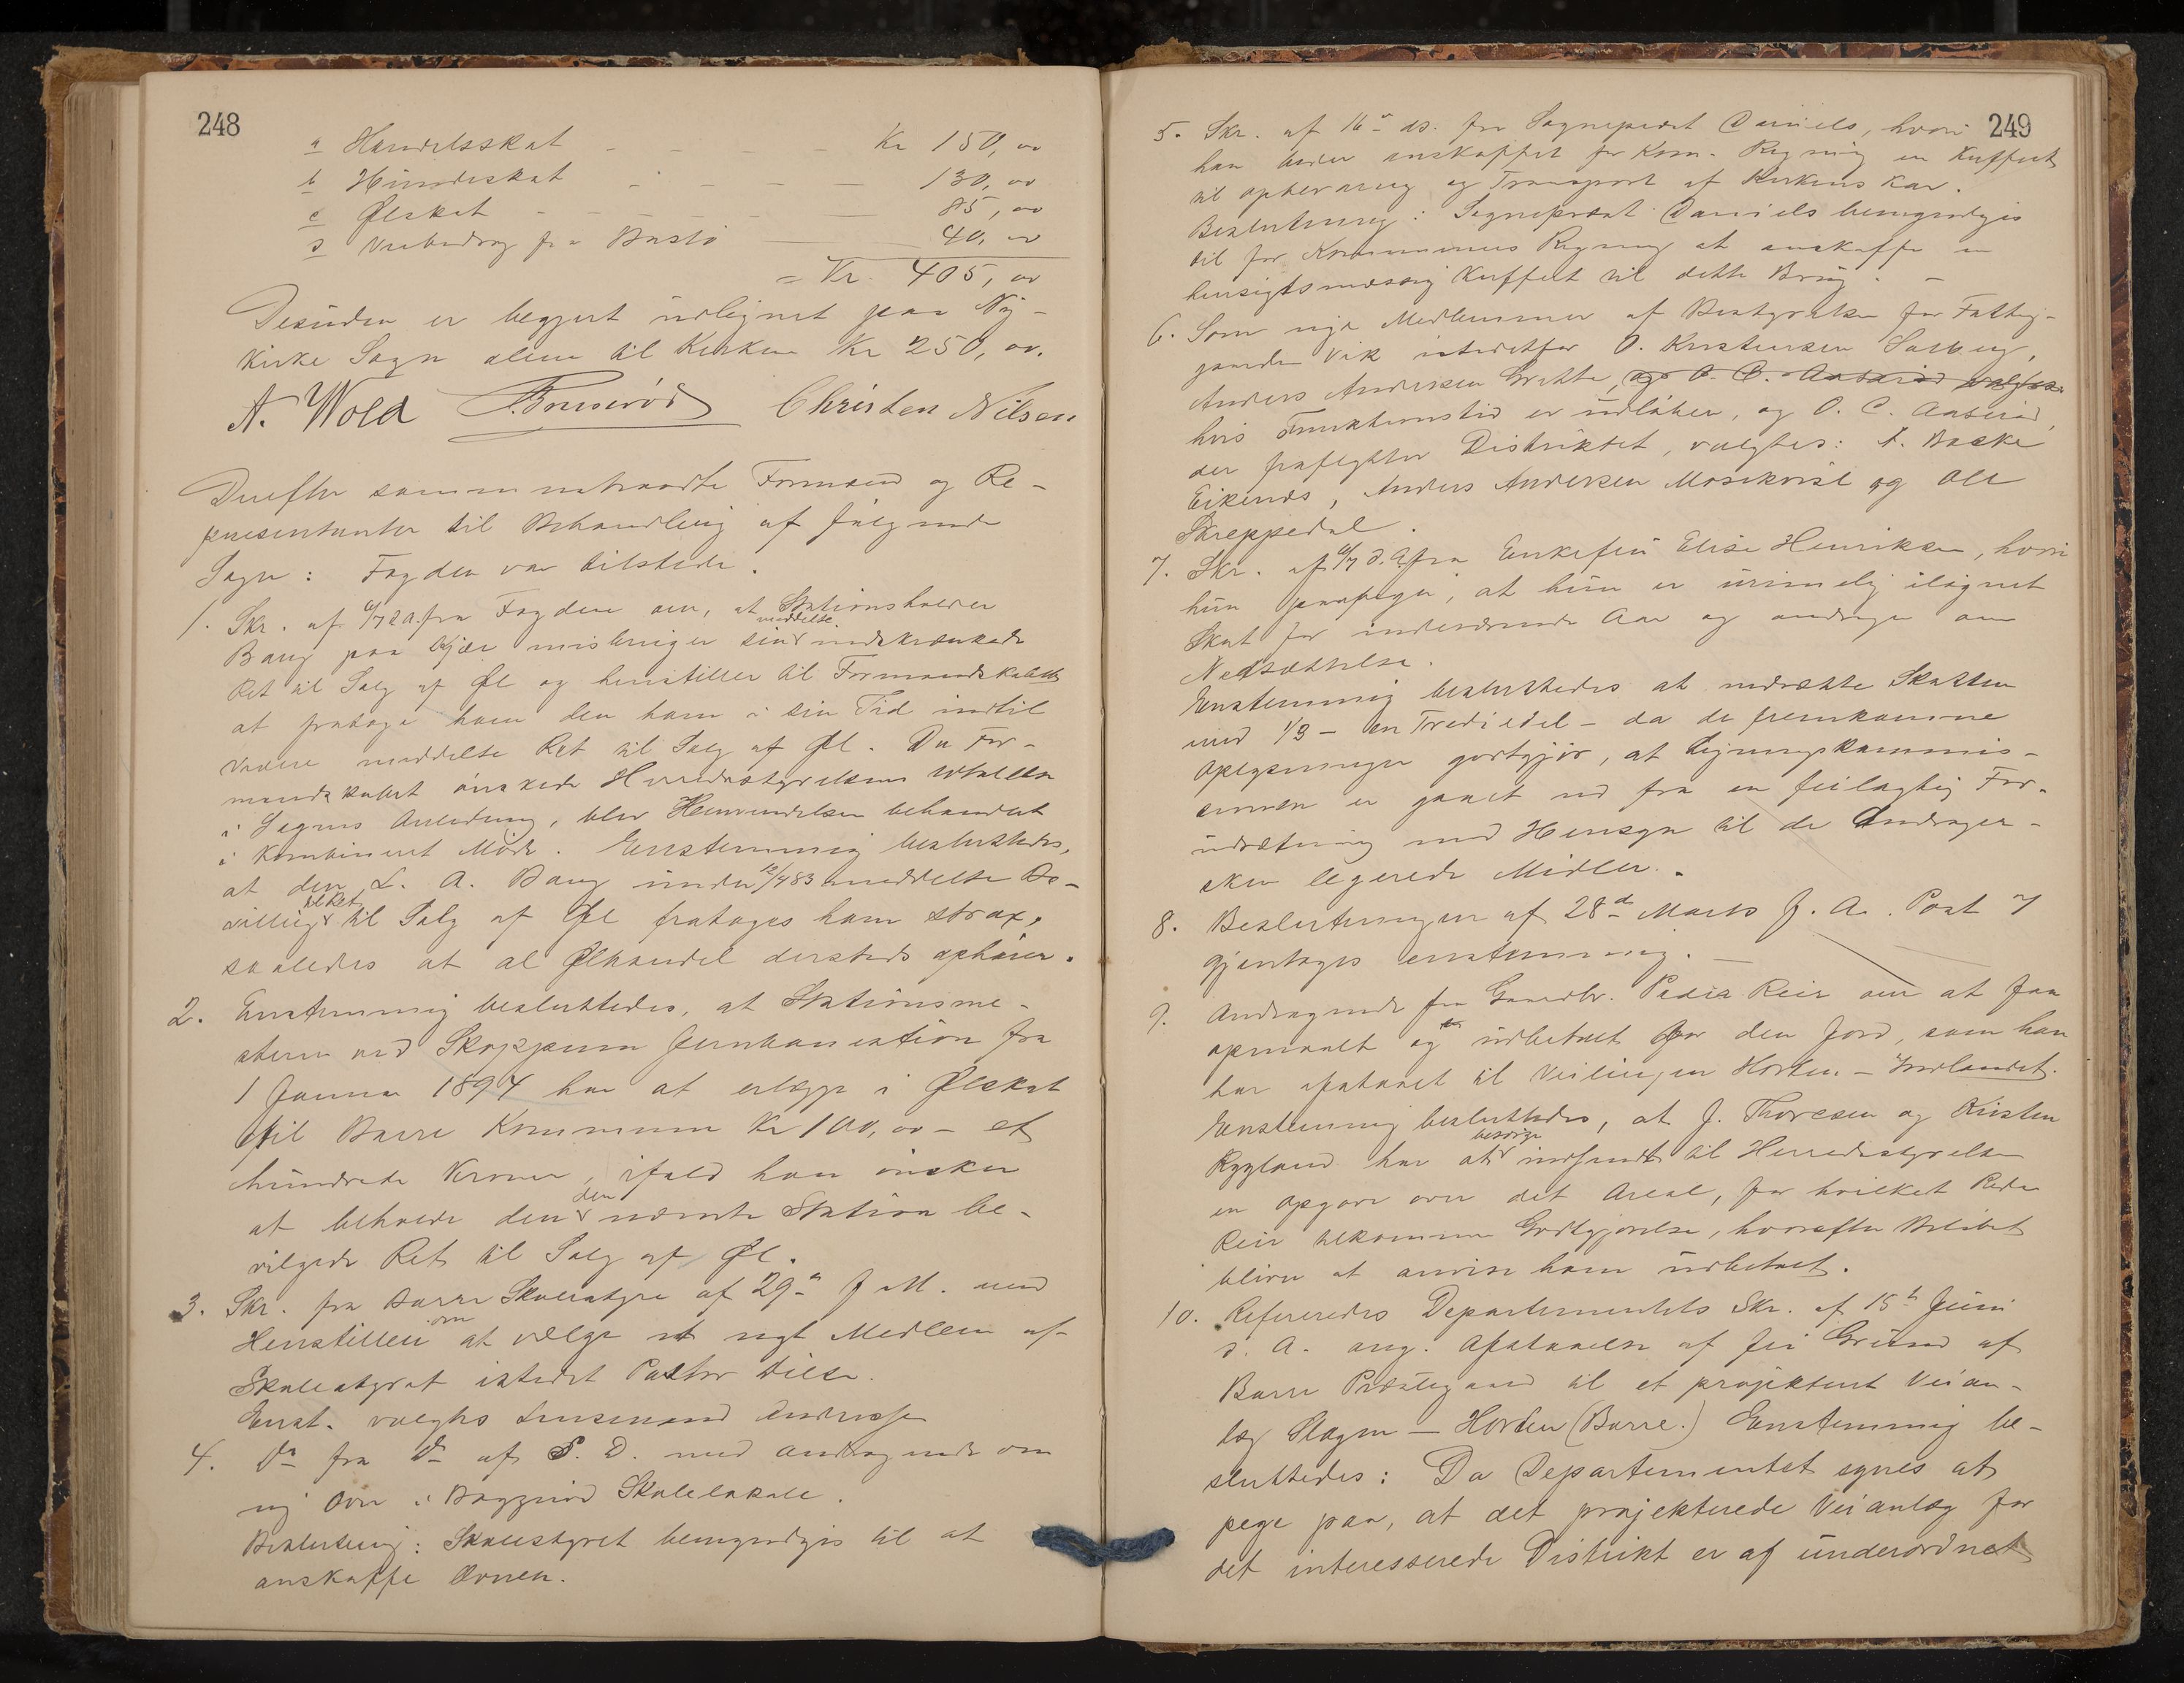 248
a Handelsskat - - - - - Kr 150,00
b Hundeskat - - - - 130,00
c Ølskat - - - - - 85,00
d Veibidrag fra Bastø 40,00
= Kr 405,00
Desuden er begjert udlignet paa Ny-
kirke Sogn alene til Kirken Kr 250,00.
A. Wold Christen Nilsen
Derefter sammentraadte Formænd og Re-
præsentanter til Behandling af følgende
Sager: Fogden var tilstede.
1. Skr. af fra Fogden om, at Stationsholder
Bang paa misbruger sin meddelte indskrænkede
Ret til Salg af Øl og henstiller til Formandskabet
at fratage ham den ham i sin Tid indtil
videre meddelte Ret til Salg af Øl. Da For-
mandskabet ønskede Herredsstyrelsens Udtalelse
i Sagens Anledning, blev Henvendelsen behandlet
i kombineret Møde. Enstemmig besluttedes,
at den L. A. Bang under 12/4 83 meddelte Be-
villing til Ret til Salg af Øl fratages ham strax,
saaledes at al Ølhandel dersteds ophører.
2. Enstemmig besluttedes, at Stationsme-
steren ved Skoppum Jernbanestation fra
1 Januar 1894 har at erlægge i Ølskat
til Borre Kommune Kr 100,00 - et
hundrede Kroner, ifald han ønsker
at beholde den den nævnte Station be-
vilgede Ret til Salg af Øl.
3. Skr. fra Borre Skolestyre af 29de f M. med
Henstillen om at vælge et nyt Medlem af
Skolestyret istedet Pastor
Enst. valgtes Lensmand
4. Do fra Do af S. D. med Andragende om
ny Ovn i Skolelokale.
Beslutning: Skolestyret bemyndiges til at
anskaffe Ovnen.
249
5. Skr. af 16de ds. fra Sogneprest Daniels, hvori
han beder anskaffet for Kom. Regning en Kuffert
til Opbevaring og Transport af Kirkens Kar.
Beslutning: Sogneprest Daniels bemyndiges
til for Kommunens Regning at anskaffe en
hensigtsmæssig Kuffert til dette Brug. -
6. Som nye Medlemmer af Bestyrelsen for Fattig-
gaarden Vik istedetfor O. Kristensen Solberg,
Anders Andersen Grette, og O. C. Aaserød valgtes
hvis Funktionstid er udløben, og O. C. Aaserød,
der fraflytter Distriktet, valgtes: A. Bakke
Eikenes, Anders Andersen Mosekvist og Ole
Skreppedal.
7. Skr. af d. A. fra Enkefru Elise Henriksen, hvori
hun paapeger, at hun er urimelig ilignet
Skat for indeværende Aar og andrager om
Nedsættelse.
Enstemmig besluttedes at nedsætte Skatten
med 1/3 - en Trediedel - da de fremkomne
Oplysninger godtgjør, at Ligningskommis-
sionen er gaaet ud fra en feilagtig For-
udsætning med Hensyn til de Andrager-
sken legerede Midler.
8. Beslutningen af 28de Marts f. A. Post 7
gjentages enstemmig. -
9. Andragende fra Gaardbr. Peder Reir om at faa
opmaalt og udbetalt for den Jord, som han
har afstaaet til Veilinjen Horten - Indlandet.
Enstemmig besluttedes, at J. Thoresen og Kristen
Rygland har at besørge indsendt til Herredsstyrelsen
en Opgave over det Areal, for hvilket Peder
Reir tilkommer Godtgjørelse, hvorefter Beløbet
bliver at anvise ham udbetalt.
10. Refereredes Departementets Skr. af 15de Juni
d. A. ang. Afstaaelse af fri Grund af
Borre Præstegaard til et projekteret Veian-
læg Slagen - Horten (Borre.) Enstemmig be-
sluttedes: Da Departementet synes at
pege paa, at det projekterede Veianlæg for
det interesserede Distrikt er af underordnet